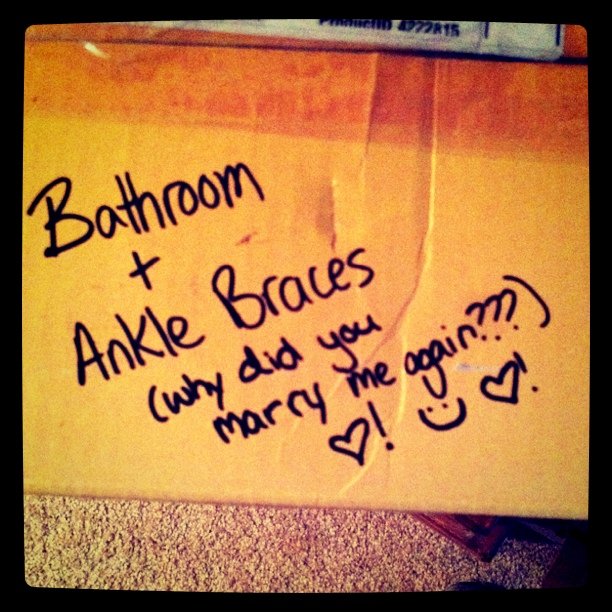 ProductID 4222815
Bathroom
+
Ankle Braces
(why did you
marry me again???)
♡! ☺ ♡!